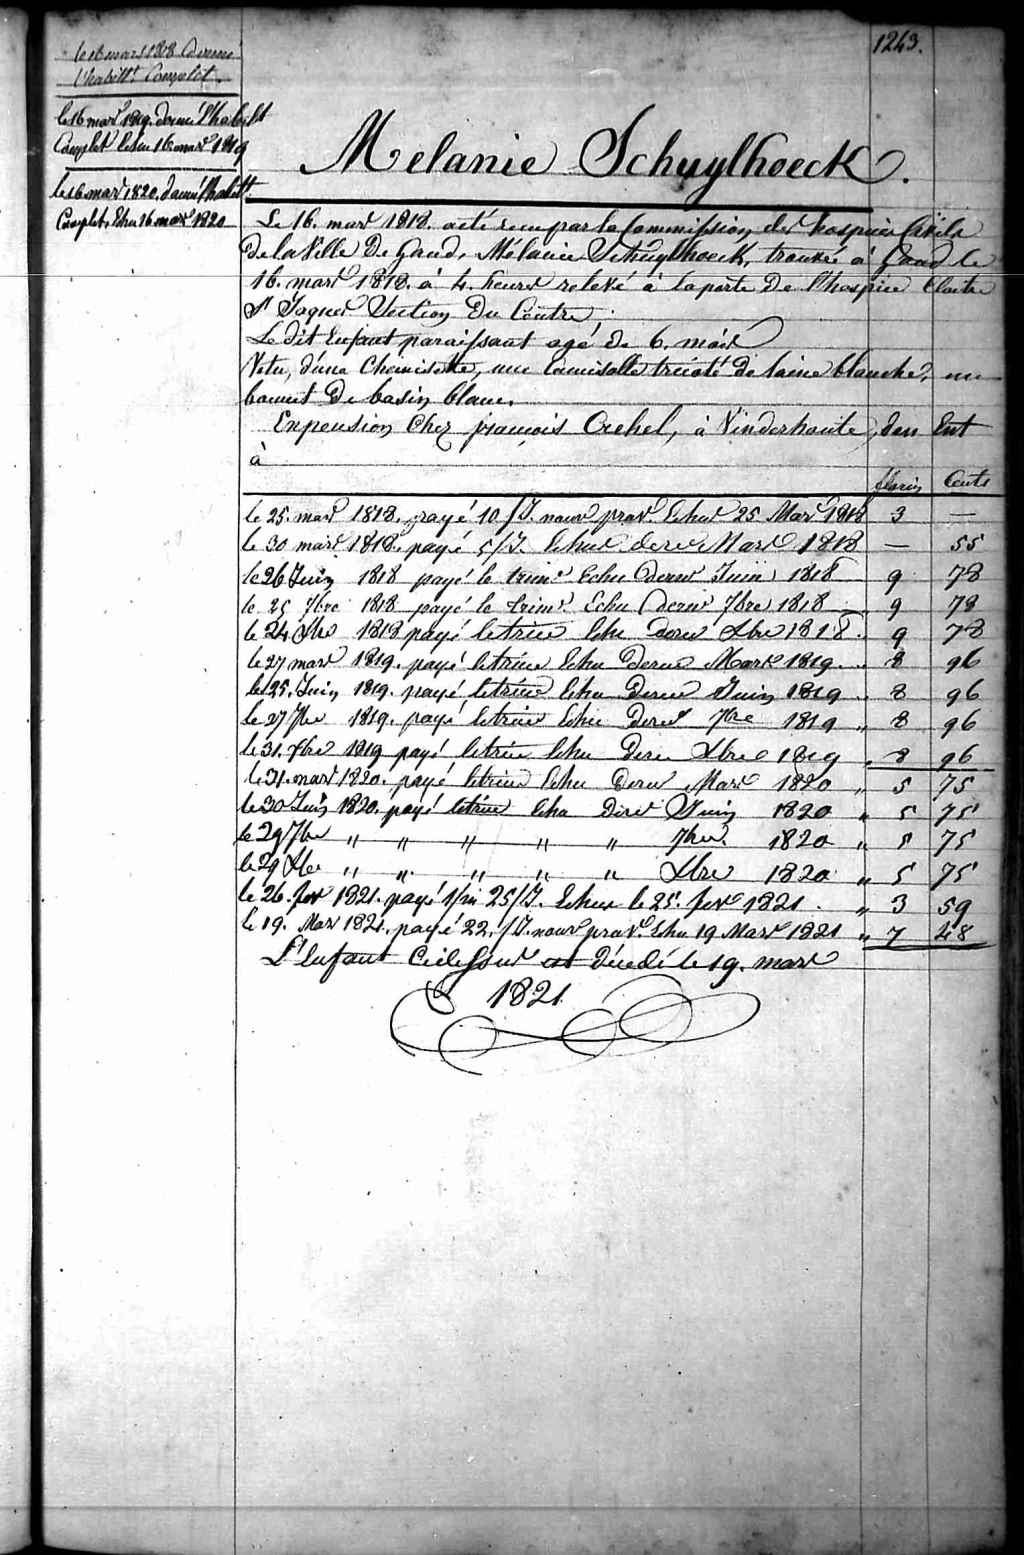 1243.
le 16 mars 1818 donné
l'habillt. Complet.
le 16 mars 1819. donné l'habilt
Complet Echu 16 mars 1819
le 16 mars 1820. donné l'habillt.
Complet, Echu 16 mars 1820
Melanie Schuylhoeck.
Le 16. mars 1818. a été recu par la Commission des hospices Civils
de la Ville De Gand, Mélanie Schuylhoeck, trouvée à Gand le
16. mars 1818. à 4. heures relevé à la porte De l'hospice Cloitre
St Jaques Section Du Centre.
Le dit Enfant paraissant agé de 6. mois
Vetu, d'une Chemisette, une Camisolle tricoté de laine blanche, un
bonnet De basin blanc.
En pension Chez francois Crehel, à Vinderhoute,
à
florins Cents
le 25. mars 1818. payé 10/J. nour prov. Echus 25 Mars 1818 3 —
le 30 mars 1818. payé 5/J. Echus derer Mars 1818 — 55
le 26 Juin 1818 payé le trime Echu derer Juin 1818 9 78
le 25 7bre 1818 payé le trimr Echu derer 7bre 1818 9 78
le 24 Xbre 1818 payé le trim Echu derer Xbre 1818. 9 78
le 27 mars 1819. payé le trim Echu derer Mars 1819. " 8 96
le 25. Juin 1819. payé le trim Echu derer Juin 1819 " 8 96
le 27 7bre 1819. payé le trim Echu derer 7bre 1819 " 8 96
le 31. Xbre 1819 payé le trim Echu derer Xbre 1819 " 8 96
le 31. mars 1820. payé le trim Echu derer Mars 1820 " 5 75
le 30 Juin 1820. payé le trim Echu derer Juin 1820 " 5 75
le 29 7bre " " " " " 7bre. 1820 " 5 75
le 29 Xbre " " " " " Xbre 1820 " 5 75
le 26. fevr 1821. payé 25/J. Echus le 25. fevr 1821. " 3 59
le 19. Mars 1821. payé 22./J. nour prov. Echu 19 Mars 1821 " 7 48
L'Enfant Cidessus est décédé le 19. mars
1821.